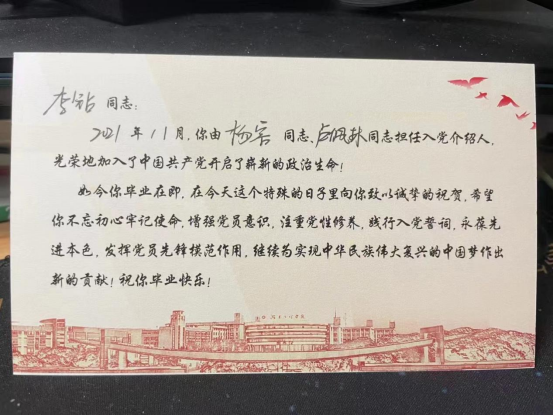 李钻 同志：
2021 年 11 月，你由 杨宗 同志、卢佩琳同志担任入党介绍人，
光荣地加入了中国共产党开启了崭新的政治生命！
如今你毕业在即，在今天这个特殊的日子里向你致以诚挚的祝贺，希望
你不忘初心牢记使命，增强党员意识，注重党性修养，践行入党誓词，永葆先
进本色，发挥党员先锋模范作用，继续为实现中华民族伟大复兴的中国梦作出
新的贡献！祝你毕业快乐！